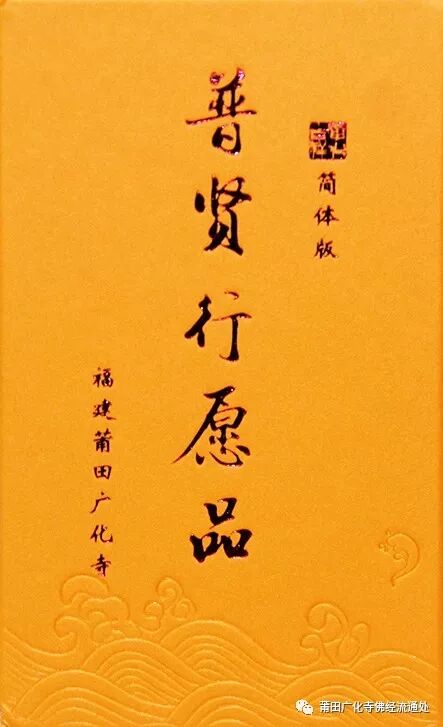 简体版
普贤行愿品
福建莆田广化寺
莆田广化寺佛经流通处